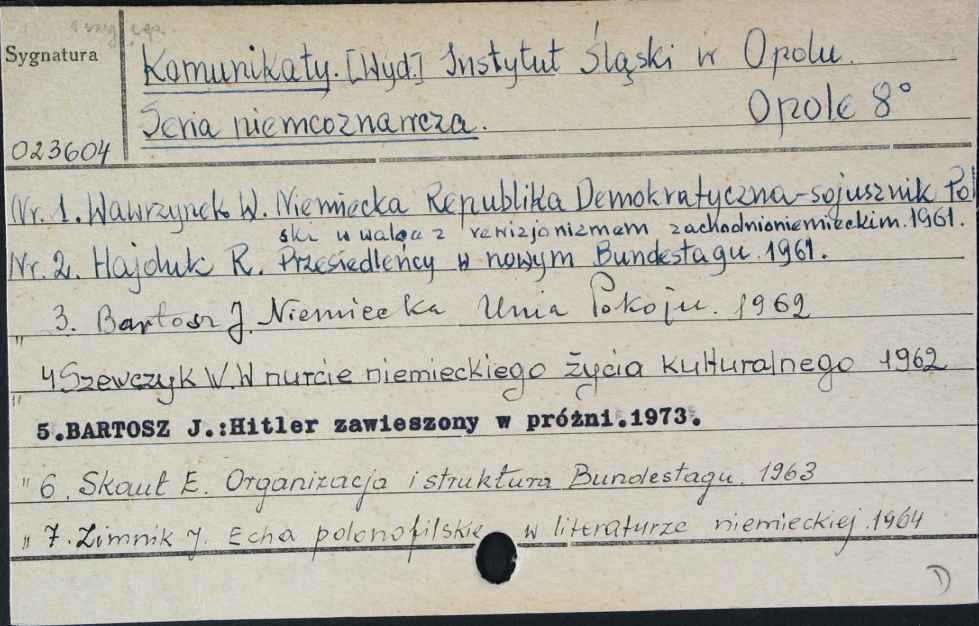 Sygnatura
Komunikaty. [Wyd.] Instytut Śląski w Opolu.
Opole 8°
Seria niemcoznawcza.
023604
Nr. 1. Wawrzynek W. Niemiecka Republika Demokratyczna - sojusznik Pol
ski w walce z rewizjonizmem zachodnioniemieckim. 1961.
Nr. 2. Hajduk R. Przesiedleńcy w nowym Bundestagu 1961.
" 3. Bartosz J. Niemiecka Unia Pokoju. 1962
" 4 Szewczyk W. W nurcie niemieckiego życia kulturalnego 1962
5.BARTOSZ J.:Hitler zawieszony w próżni.1973.
" 6. Skaut E. Organizacja i struktura Bundestagu. 1963
" 7. Zimnik J. Echa polonofilskie w literaturze niemieckiej. 1964
D